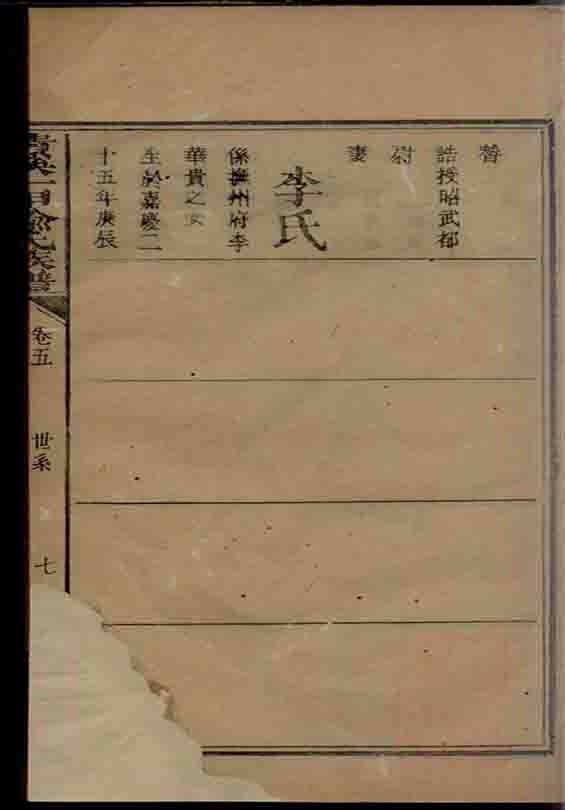 誥授昭武都
尉
妻
李氏
係撫州府李
華貴之女
生於嘉慶二
十五年庚辰
氏族譜
卷五
世系
七